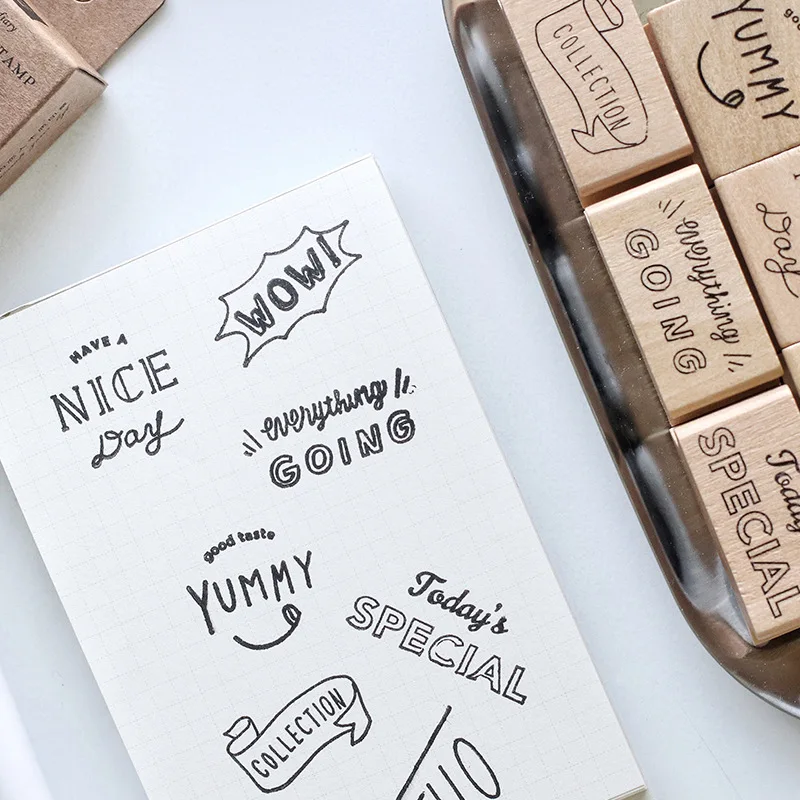 WOW!
HAVE A
NICE
Day
everything
GOING
good taste
YUMMY
Today's
SPECIAL
COLLECTION
COLLECTION
YUMMY
everything
GOING
Day
Today
SPECIAL